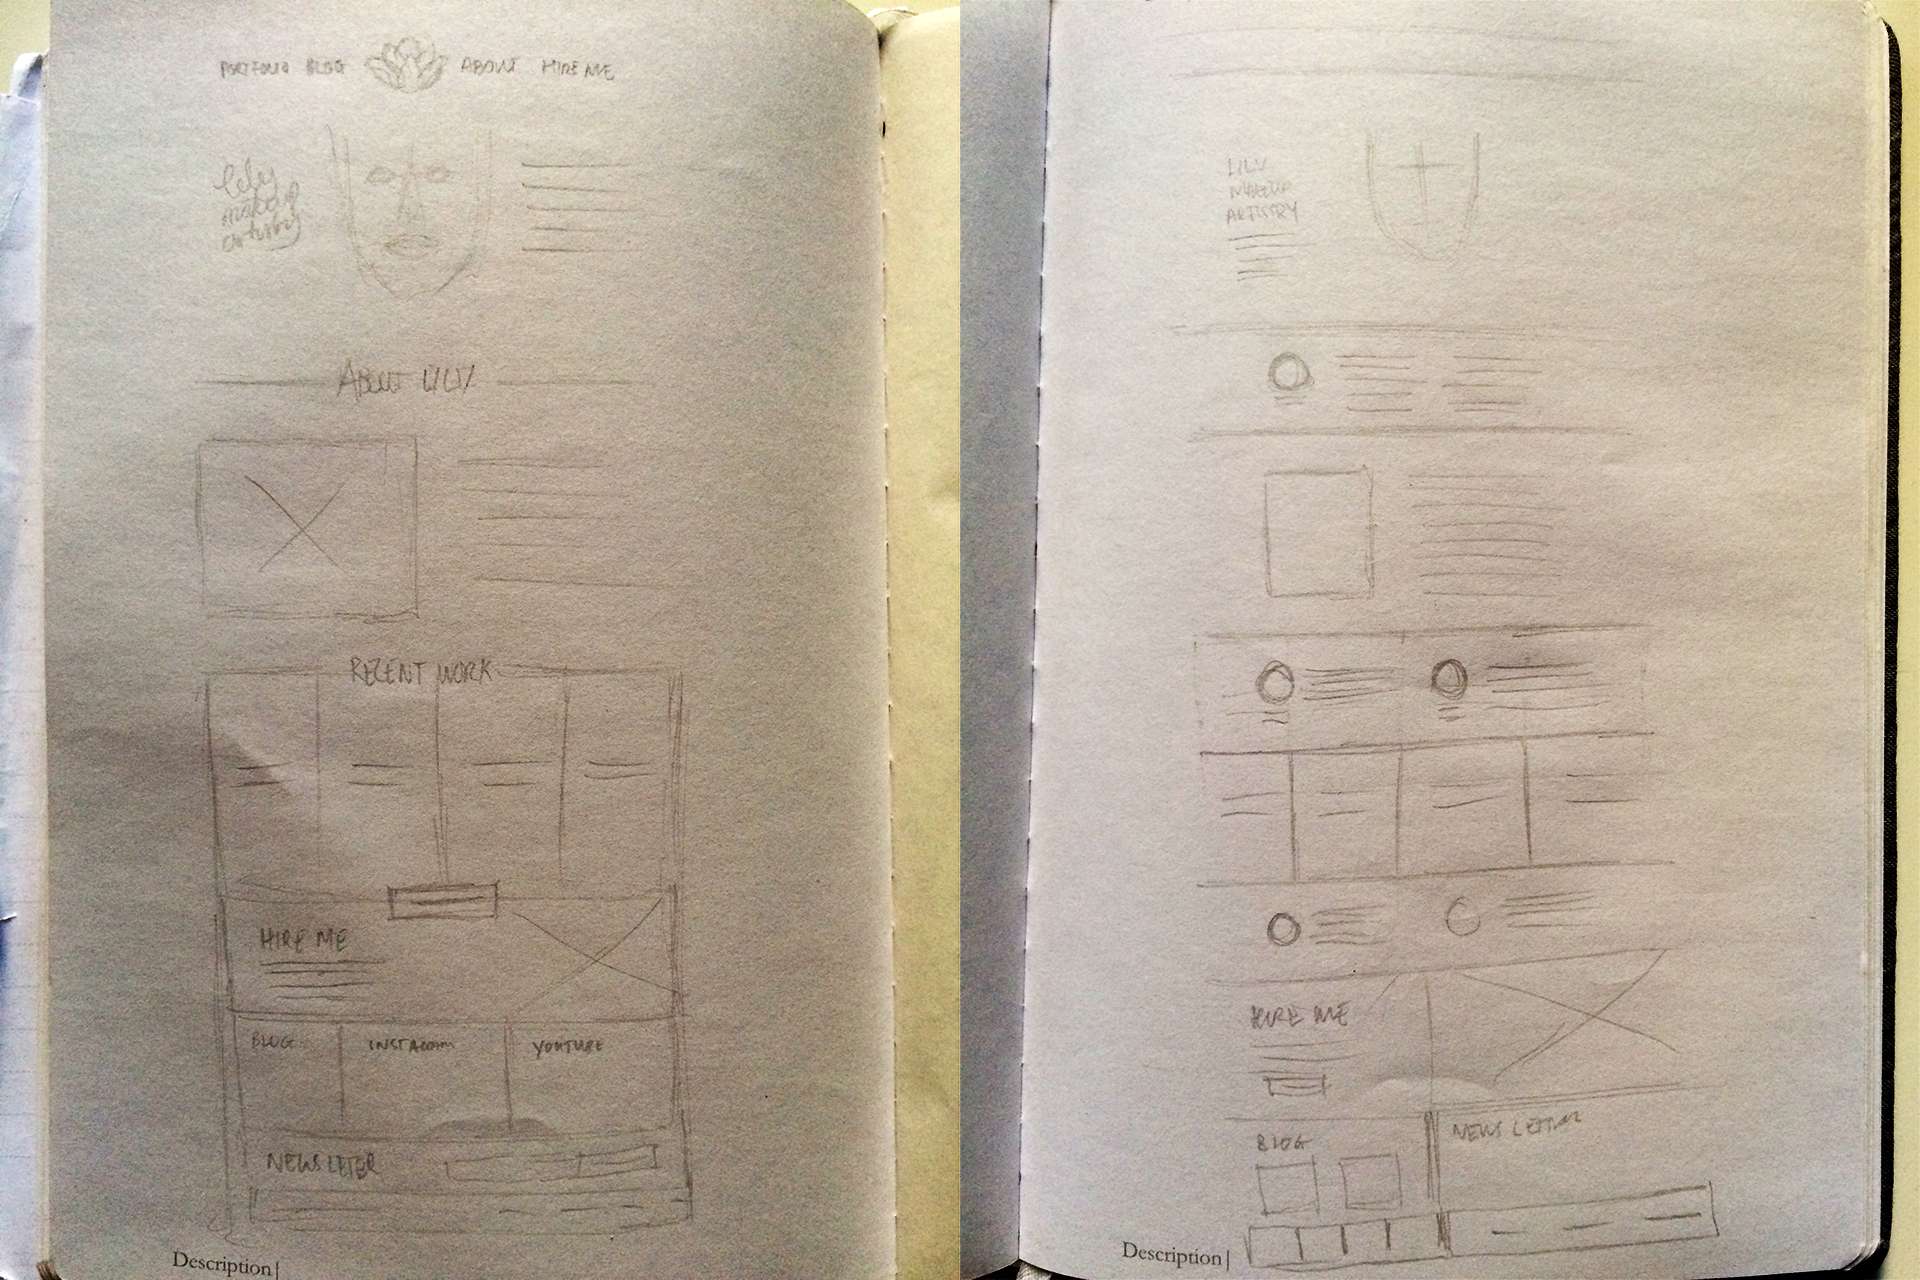 PORTFOLIO BLOG ABOUT HIRE ME
lily
makeup
artistry
ABOUT LILY
RECENT WORK
HIRE ME
BLOG INSTAGRAM YOUTUBE
NEWSLETER
Description
LILY
MAKEUP
ARTISTRY
HIRE ME
BLOG
NEWSLETTER
Description